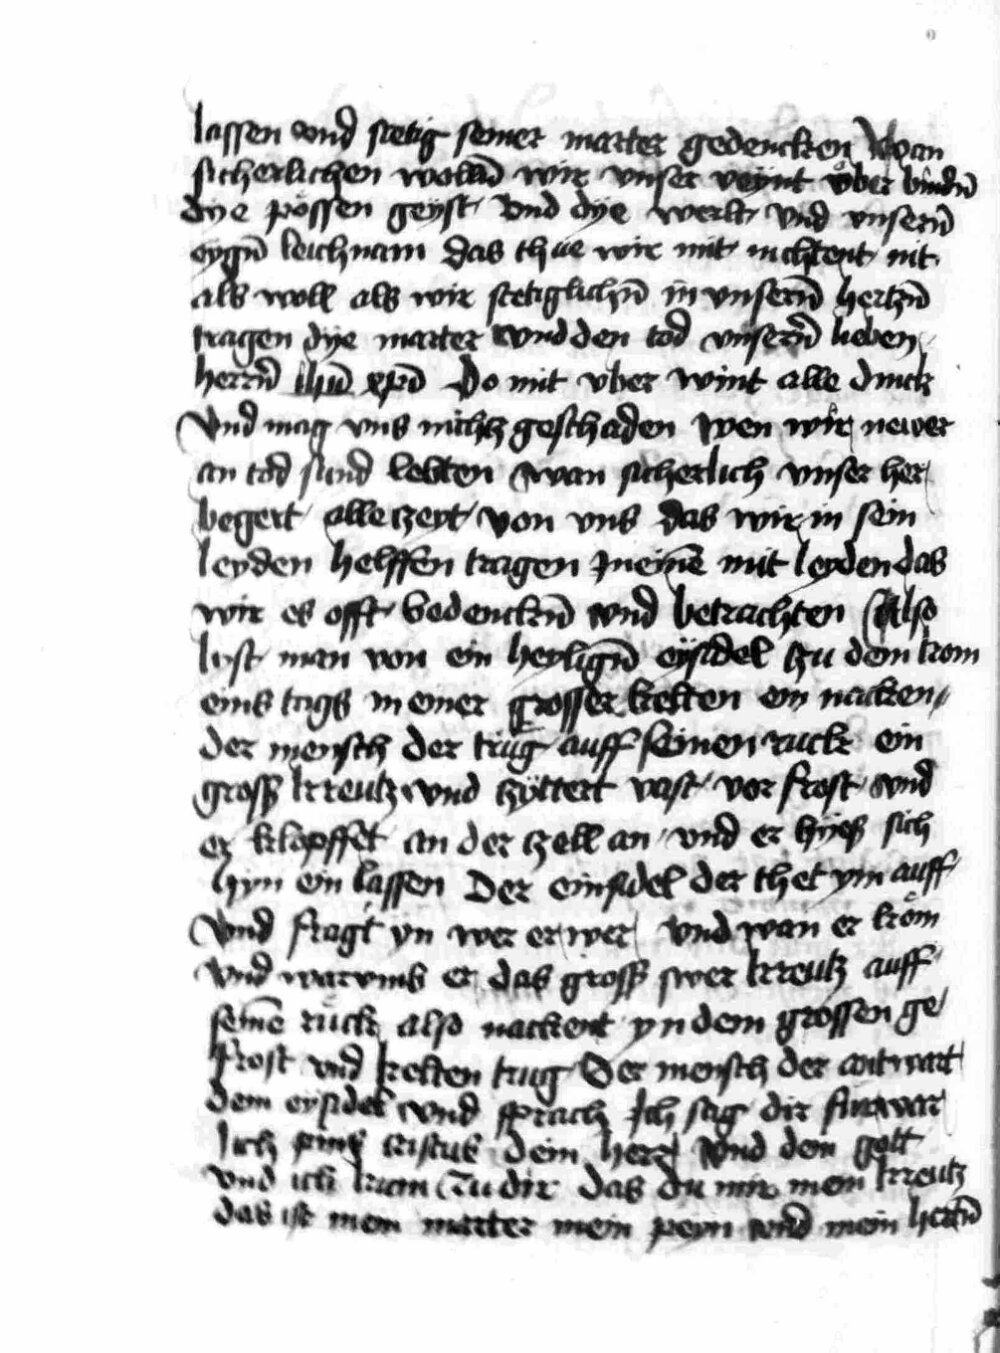 lassen vnd stetig seiner marter gedencken Wan
sicherlichen wolln̄ wir vnser veynt vber bindn̄
dye pössen geyst vnd dye werlt vnd vnsern̄
eygn̄ leichnam das thue wir mit nichtent nit
als woll als wir stetiglichn̄ in vnsern̄ hertzn̄
tragen dye marter vnd den tod vnsern̄ lieben
herrn̄ ihū xpū Do mit vber wint alle dinck
Vnd mag vns nichtz geschaden wen wir newer
an tod sund lebten wan sicherlich vnser her
begert alle tzeyt von vns das wir in sein
leyden helffen tragen meine mit leyden das
wir es offt bedenckn̄ vnd betrachten Also
list man von ein heylign̄ eÿsidel tzu dem kom
eins tags in einer grosser kelten ein nacken
der mensch der trug auff seinen ruck ein
gross kreutz vnd tzyttert vast vor frost vnd
er klopffet an der tzell an vnd er hyess sich
hyn ein lassen Der einsidel der thet ym auff
Vnd fragt yn wer er wer vnd wan er köm
Vnd warvmb er das gross swer kreutz auff
seinē rück also nackent yn dem grossen ge
frost vnd kelten trug Der mensch der antwart
dem eysidel vnd sprach Ich sag dir furwar
Ich pins cristus dein herr vnd dein gott
vnd ich kum zu dir das du mir mein kreutz
das ist mein marter mein peyn vnd mein hertn̄